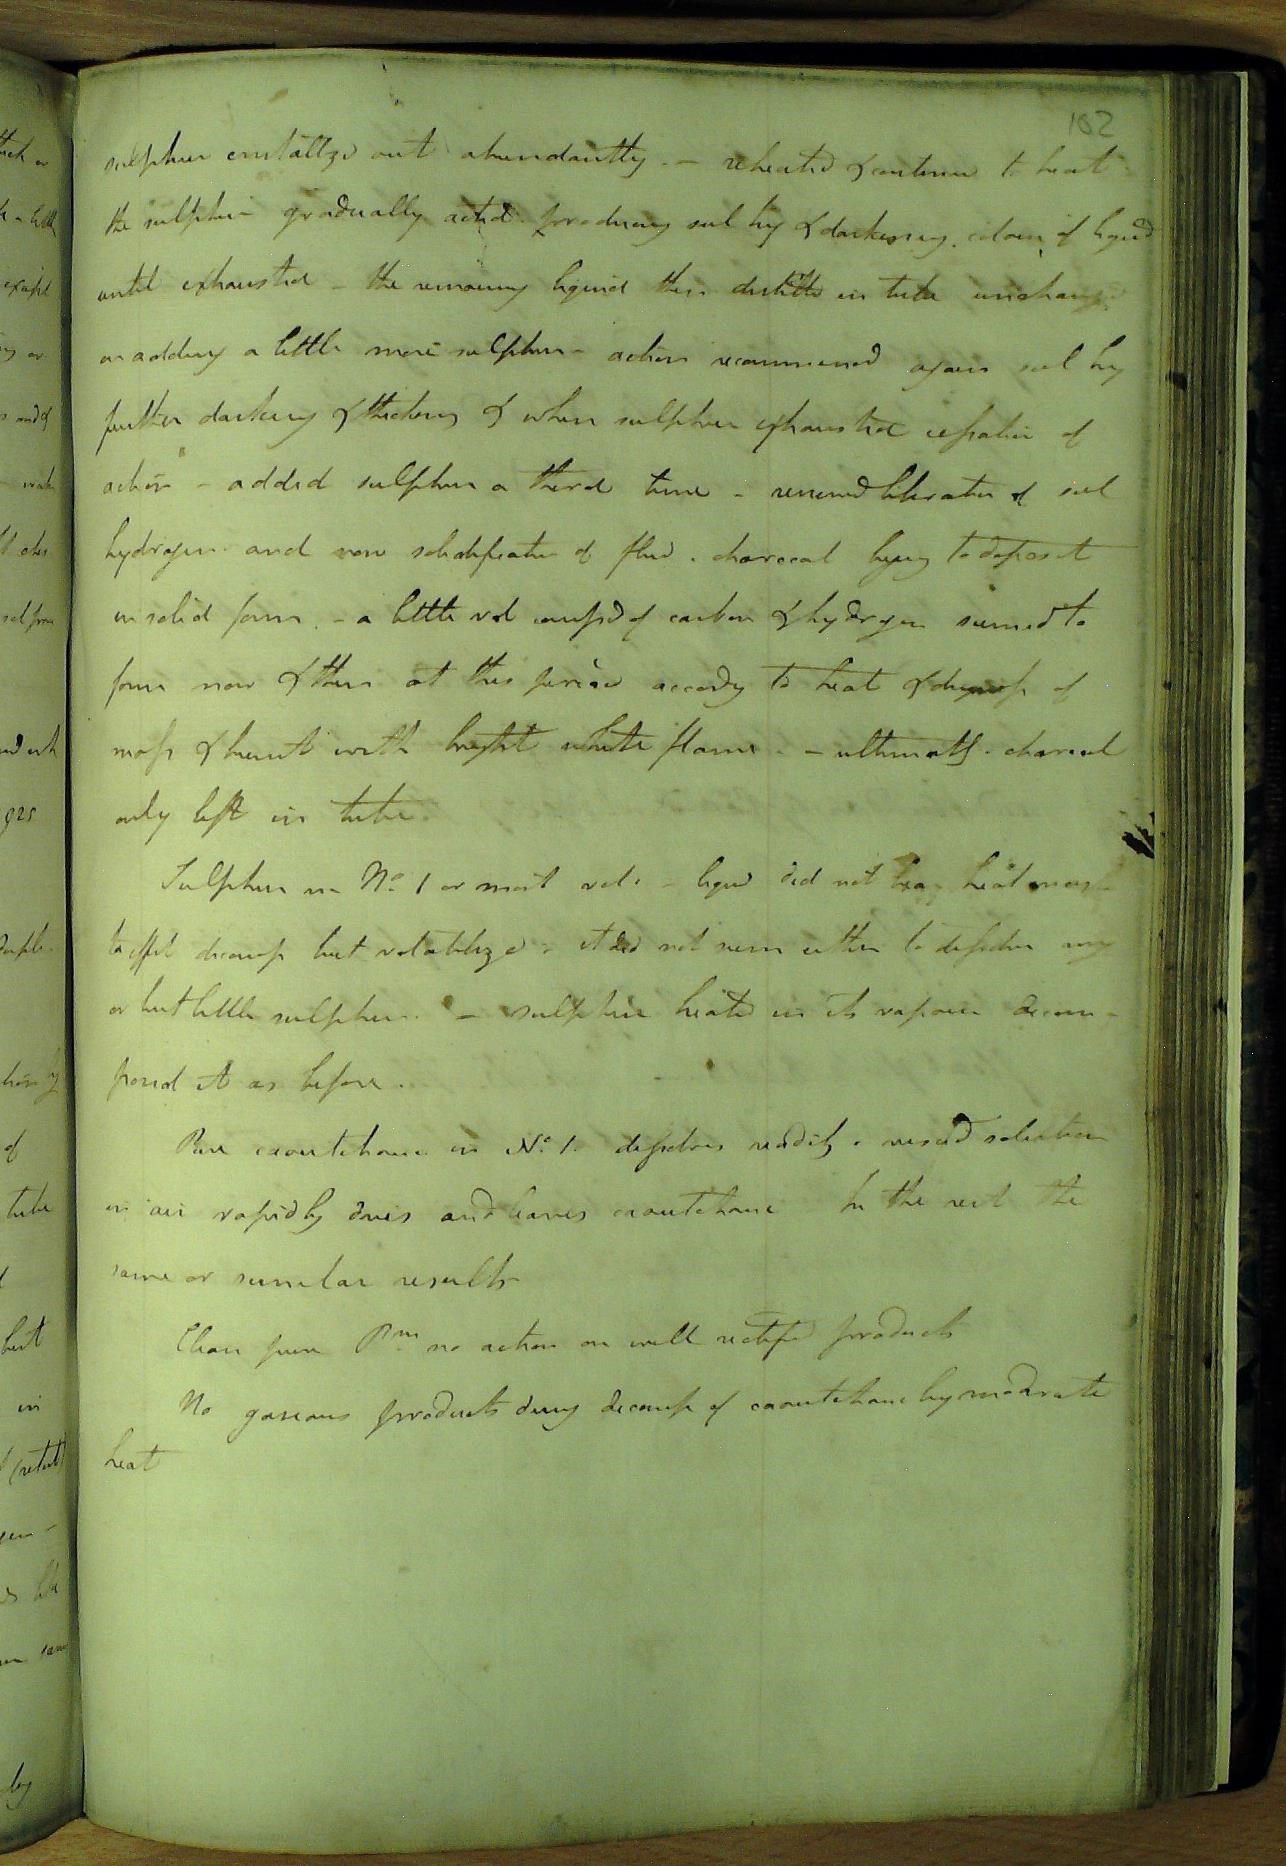 102
sulphur crystallizd out abundantly. - reheated & continued to heat
the sulphur gradually acted producing sul hy & darkening colour of liquid
until exhausted - the remaining liquid then distilld in tube unchangd
on adding a little more sulphur - action recommenced again sul hy
further darkening & thickening & when sulphur exhausted cessation of
action - added sulphur a third time - renewed liberation of sul
hydrogen and now solidification of fluid . charcoal beging to deposit
in solid form. - a little vol compd of carbon & hydrogen seemed to
form now & then at this period accordg to heat & dryness of
mass & burnt with bright white flame - ultimately charcoal
only left in tube.
Sulphur in No 1 or most vol. - liquid did not bear heat enough
to effect decomp but volatilized - it did not seem either to dissolve any
or but little sulphur. - sulphur heated in its vapour decom-
posed it as before.
Pure caoutchouc in No 1. dissolves readily . viscid solution
in air rapidly dries and leaves caoutchouc In the rest the
same or similar results
Clean pure Pm no action on well rectifd products
No gaseous products during decomp of caoutchouc by moderate
heat